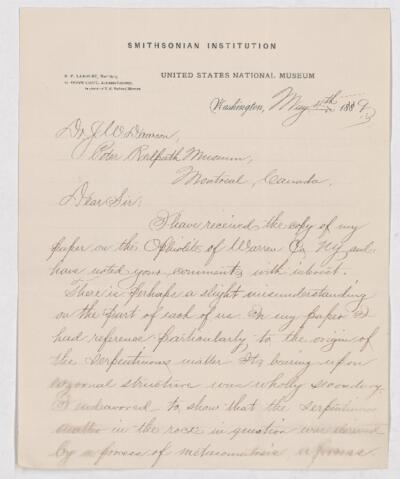 SMITHSONIAN INSTITUTION
S. P. LANGLEY, Secretary.
G. BROWN GOODE, Assistant Secretary,
In charge of U. S. National Museum.
UNITED STATES NATIONAL MUSEUM
Washington, May 11th 1889
Dr J W Dawson,
Peter Redpath Museum,
Montreal, Canada.
Dear Sir:
I have received the copy of my
paper on the Ophiolite of Warren Co, NY, and
have noted your comments with interest.
There is perhaps a slight misunderstanding
on the part of each of us. In my paper I
had reference particularly to the origin of
the serpentinous matter. Its bearing upon
eozoonal structure was wholly secondary.
I endeavored to show that the serpentinous
matter in the rock in question was derived
by a process of metasomatosis, a process